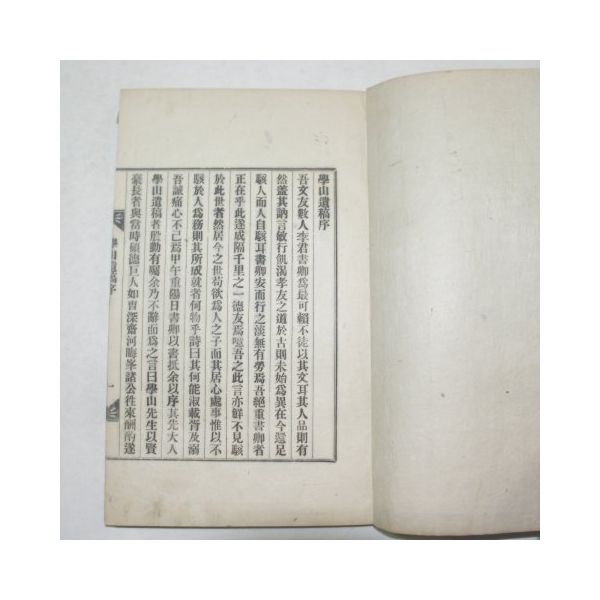 學山遺稿序
吾文友數人李君書卿爲最可賴不徒以其文耳其人品則有
然盖其訥言敏行飢渴孝友之道於古則未始爲異在今還足
駭人而人自駭耳書卿安而行之淡無有勞焉吾絕重書卿者
正在乎此遂成隔千里之一德友焉噫吾之此言亦鮮不見駭
於此世者然居今之世苟欲爲人之子而其居心處事惟以不
駭於人爲務則其所成就者何物乎詩曰其何能淑載胥及溺
吾誠痛心不已焉甲午重陽日書卿以書抵余以序其先大人
學山遺稿者於勤有囑余乃不辭而爲之言曰學山先生以賢
豪長者與當時碩德巨人如曺深齋河晦峯諸公徃來酬酌遂
學山遺稿序
一